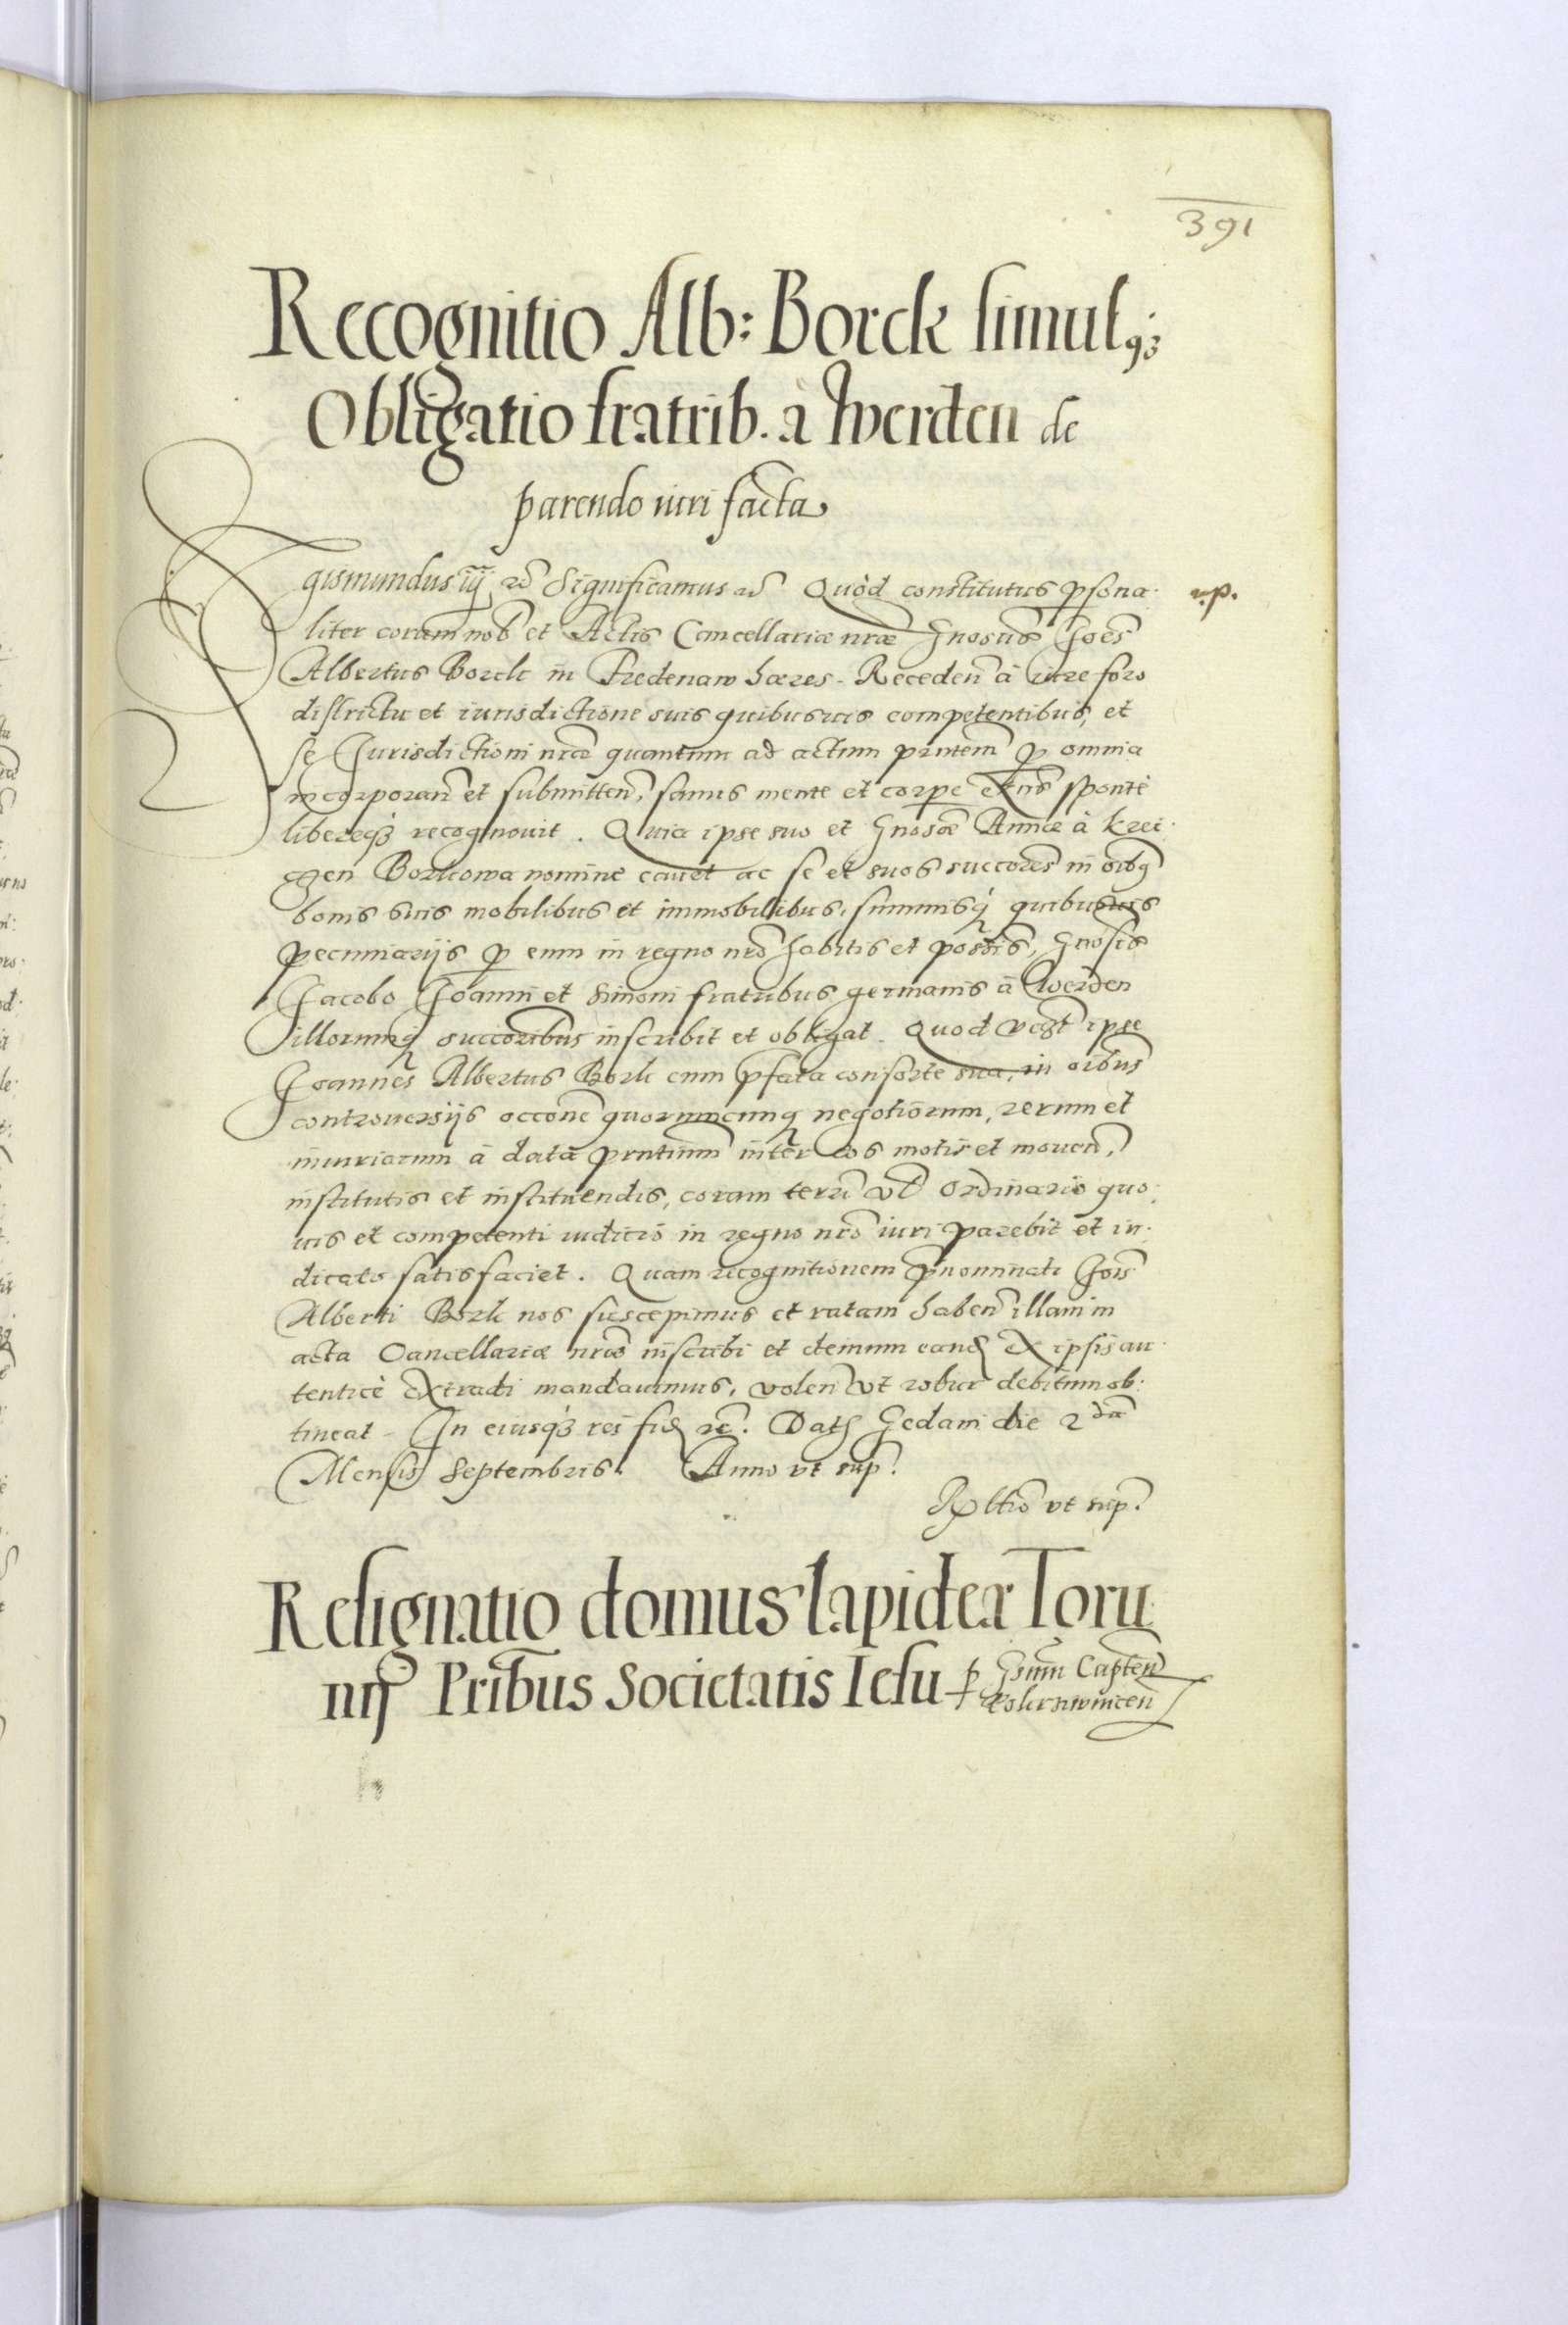 391
Recognitio Alb: Borck simulq3
Obligatio fratrib. à Werden de
parendo iuri facta
Sigismundus iij rc Significamus rc Quòd constitutus psona-
r.p.
liter coram nob et Actis Cancellariæ nræ Gnosus Joes
Albertus Borck in Predenaw hæres. Receden à iure foro
districtu et iurisdictione suis quibusuis competentibus, et
se Jurisdictioni nræ quantum ad actum pntem p omnia
incorporan et submitten, sanus mente et corpe extns sponte
libereq3 recognouit. Quia ipse suo et Gnosæ Annæ à Krei-
tzen Borkowa nomine cauet ac se et suos succores in oibq
bonis suis mobilibus et immobilibus, summisq quibusuis
pecuniarijs p eum in regno nro habitis et possis, Gnosis
Jacobo Joanni et Simoni fratribus germanis à Werden
illorumq succoribus inscribit et obligat. Quod vbi ipse
Joannes Albertus Bork cum pfata consorte sua, in oibus
controuersijs occone quorumcunq negotiorum, rerum et
iniuriarum à data pntium inter eos motis et mouen,
institutis et instituendis, coram terri vl ordinario quo-
uis et competenti iudicio in regno nro iuri parebit et iu-
dicato satisfaciet. Quam recognitionem pnominati Jois
Alberti Bork nos suscepimus et ratam haben illam in
acta Cancellariæ nræ inscribi et demum eand ex ipsis au-
tenticè extradi mandauimus, volen vt robur debitum ob-
tineat. In eiusq3 rei fid rc. Dat Gedani die 2da
Mensis Septembris. Anno vt sup.
Rltio vt sup.
Resignatio domus lapideæ Toru-
nij Pribus Societatis Iesu p Gsum Capten
Rolirnwincen